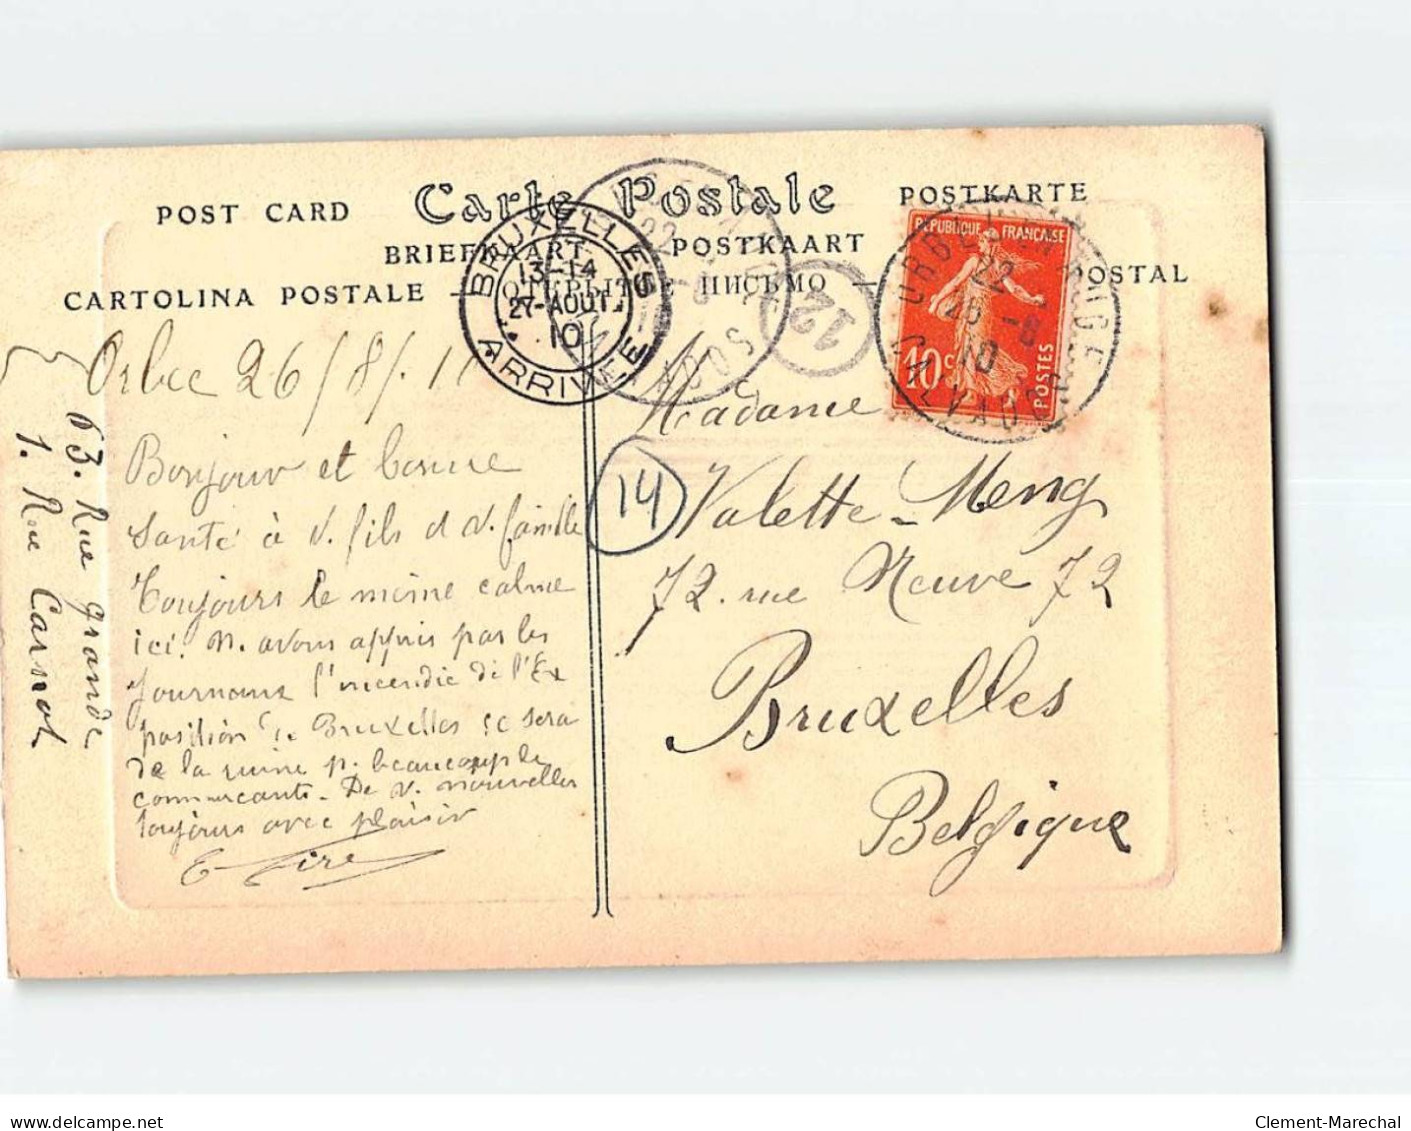 POST CARD
Carte Postale
POSTKARTE
BRIEFKAART
POSTKAART
CARTOLINA POSTALE
ОТКРЫТОЕ ПИСЬМО
POSTAL
BRUXELLES
13-14
27-AOUT
10
ARRIVÉE
12
RÉPUBLIQUE FRANÇAISE
10c
POSTES
ORBEC-EN-AUGE
22
26-8
10
CALVADOS
Orbec 26/8/.10
Bonjour et bonne
santé à v. fils et v. famille
Toujours le même calme
ici. N. avons appris par les
journaux l'incendie de l'Ex
position de Bruxelles ce sera
de la ruine p. beaucoup de
commerçants. De v. nouvelles
toujours avec plaisir
63. Rue grande
1. Rue Carnot
14
Madame
Valette-Meng
72. rue Neuve 72
Bruxelles
Belgique
delcampe.net
Clement-Marechal